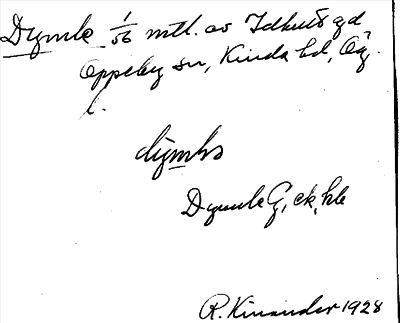 Dymle 1/56 mtl. av Idhult gd
Oppeby sn, Kinda hd, Ög.
l.
dymlə
Dymle G, ek, hle
R. Kinander 1928